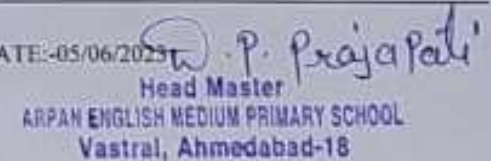 ATE:-05/06/2023 D. P. Prajapati
Head Master
ARPAN ENGLISH MEDIUM PRIMARY SCHOOL
Vastral, Ahmedabad-18